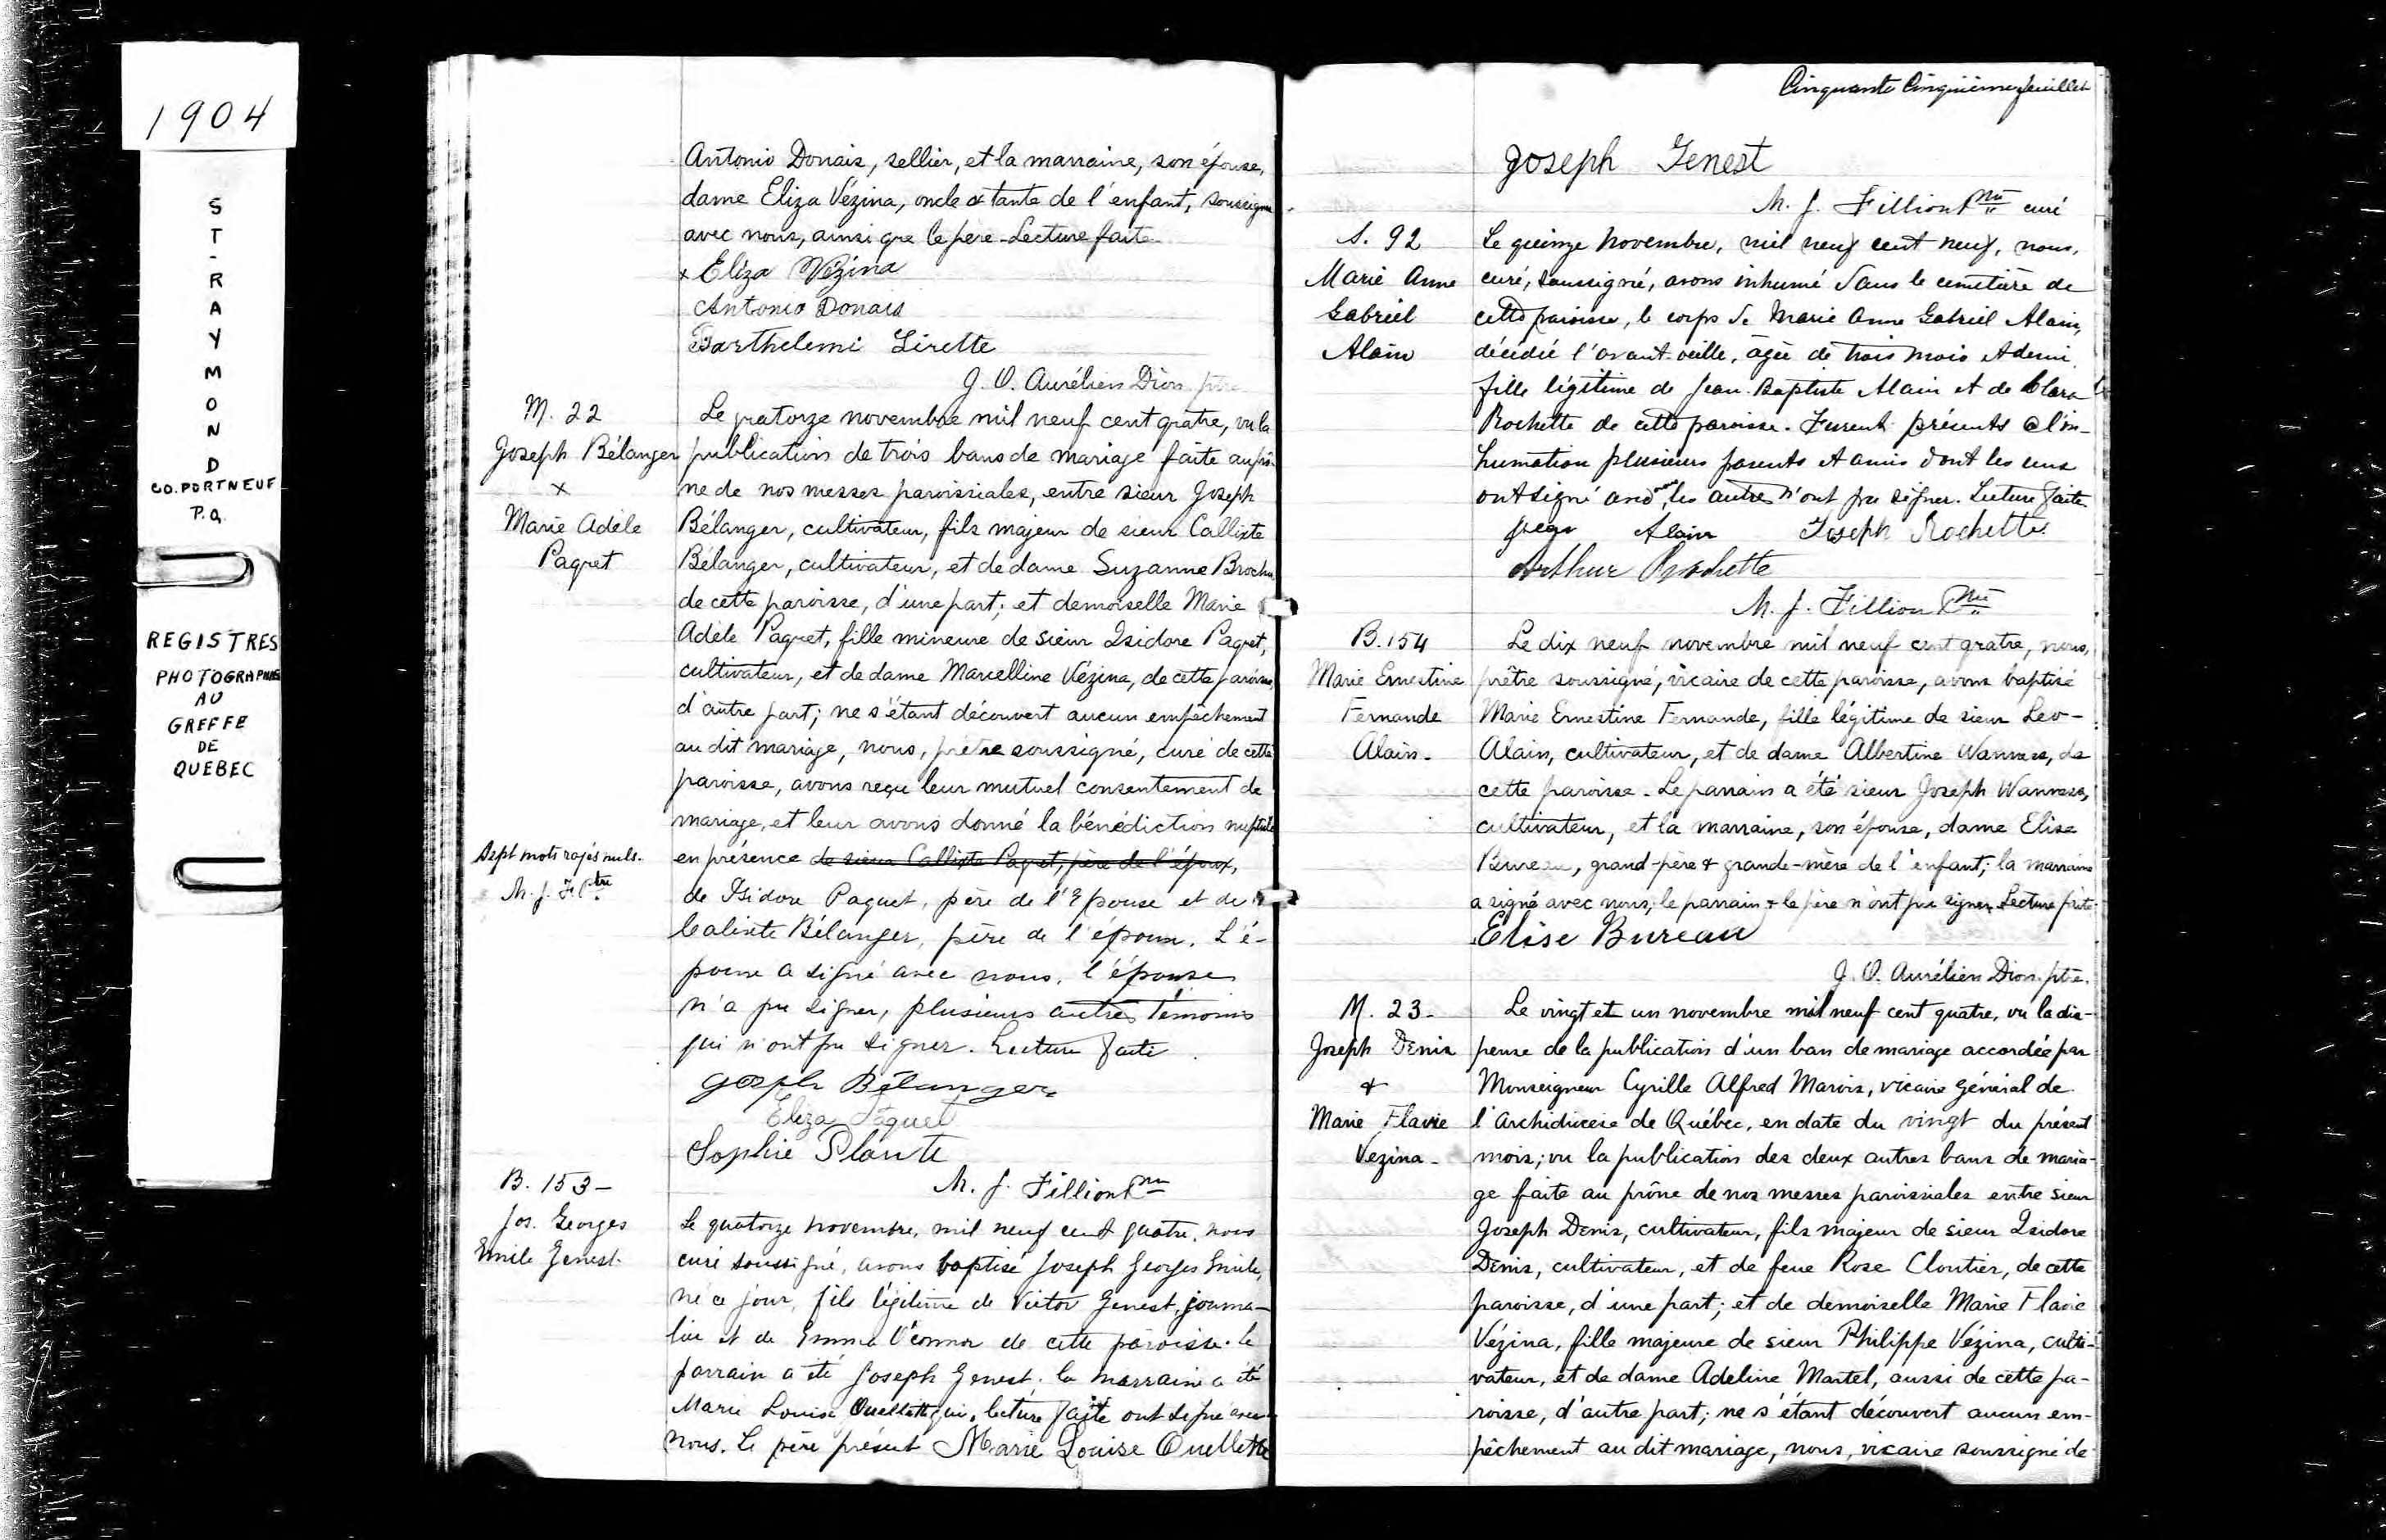 1904
ST-RAYMOND
CO. PORTNEUF
P.Q.
REGISTRES
PHOTOGRAPHIÉS
AU
GREFFE
DE
QUEBEC
Antonio Donais, sellier, et la marraine, son épouse,
dame Eliza Vézina, oncle & tante de l'enfant, soussigné
avec nous, ainsi que le père. Lecture faite.
x Eliza Vézina
Antonio Donais
Barthelemi Lirette
J. O. Aurélien Dion ptre
M. 22
Joseph Bélanger
x
Marie Adèle
Paquet
Le quatorze novembre mil neuf cent quatre, vu la
publication de trois bans de mariage faite au prô-
ne de nos messes paroissiales, entre sieur Joseph
Bélanger, cultivateur, fils majeur de sieur Callixte
Bélanger, cultivateur, et de dame Suzanne Brochu
de cette paroisse, d'une part; et demoiselle Marie
Adèle Paquet, fille mineure de sieur Isidore Paquet,
cultivateur, et de dame Marcelline Vézina, de cette paroisse,
d'autre part; ne s'étant découvert aucun empêchement
au dit mariage, nous, prêtre soussigné, curé de cette
paroisse, avons reçu leur mutuel consentement de
mariage, et leur avons donné la bénédiction nuptiale
en présence de sieur Callixte Paquet, père de l'époux,
Sept mots rayés nuls.
M. J. F. Ptre
de Isidore Paquet, père de l'Epouse et de
Calixte Bélanger, père de l'époux. L'é-
poux a signé avec nous, l'épouse
n'a pu signer, plusieurs autres témoins
qui n'ont pu signer. Lecture faite.
Joseph Bélanger
Eliza Paquet
Sophie Plante
M. J. Fillion Ptre
B. 153 -
Jos. Georges
Emile Genest.
Le quatorze novembre, mil neuf cent quatre, nous
curé soussigné, avons baptisé Joseph Georges Emile,
né ce jour, fils légitime de Victor Genest, journa-
lier et de Emma O'Connor de cette paroisse. Le
parrain a été Joseph Genest. la marraine a été
Marie Louise Ouellette qui, lecture faite ont signé avec
nous. Le père présent Marie Louise Ouellette
Cinquante Cinquième feuillet
Joseph Genest
M. J. Fillion Ptre curé
S. 92
Marie Anne
Gabriel
Alain
Le quinze novembre, mil neuf cent neuf, nous,
curé, soussigné, avons inhumé dans le cimetière de
cette paroisse, le corps de Marie Anne Gabriel Alain,
décédée l'avant-veille, âgée de trois mois et demi
fille légitime de Jean Baptiste Alain et de Clara
Rochette de cette paroisse. Furent présents à l'in-
humation plusieurs parents et amis dont les uns
ont signé avec nous, les autres n'ont pu signer. Lecture faite
Alain Joseph Rochette
Arthur Rochette
M. J. Fillion Ptre
B. 154
Marie Ernestine
Fernande
Alain.
Le dix neuf novembre mil neuf cent quatre, nous,
prêtre soussigné, vicaire de cette paroisse, avons baptisé
Marie Ernestine Fernande, fille légitime de sieur Léo-
Alain, cultivateur, et de dame Albertine Wanness, de
cette paroisse. Le parrain a été sieur Joseph Wanness,
cultivateur, et la marraine, son épouse, dame Elise
Bureau, grand-père & grande-mère de l'enfant; la marraine
a signé avec nous; le parrain & le père n'ont pu signer. Lecture faite.
Elise Bureau
J. O. Aurélien Dion ptre.
M. 23 -
Joseph Denis
&
Marie Flavie
Vezina -
Le vingt et un novembre mil neuf cent quatre, vu la dis-
pense de la publication d'un ban de mariage accordée par
Monseigneur Cyrille Alfred Marois, vicaire général de
l'Archidiocèse de Québec, en date du vingt du présent
mois; vu la publication des deux autres bans de maria-
ge faite au prône de nos messes paroissiales entre sieur
Joseph Denis, cultivateur, fils majeur de sieur Isidore
Denis, cultivateur, et de feue Rose Cloutier, de cette
paroisse, d'une part; et de demoiselle Marie Flavie
Vézina, fille majeure de sieur Philippe Vézina, culti-
vateur, et de dame Adeline Martel, aussi de cette pa-
roisse, d'autre part; ne s'étant découvert aucun em-
pêchement au dit mariage, nous, vicaire soussigné de